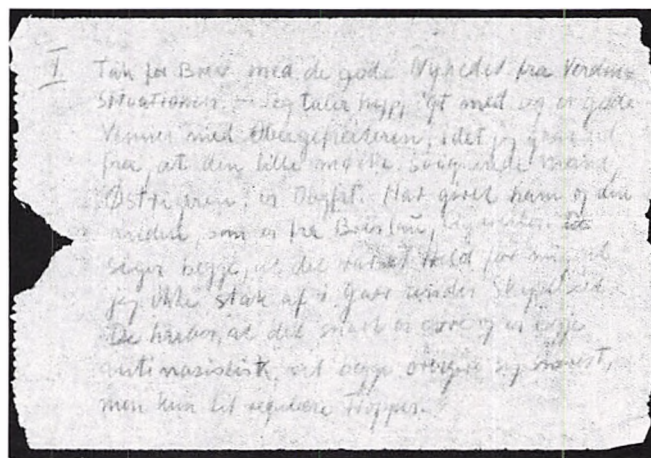 I. Tak for Brev med de gode Nyheder fra Verdens
Situationen. - Jeg taler hyppigt med og er gode
Venner med Obergefreiteren, idet jeg
fra, at den lille mørke, Mand,
Østrigeren, er Har givet ham og den
anden, som er fra Breslau, Cigaretter. De
siger begge, at det var et Held for mig, at
jeg ikke stak af i Gaar under
De haaber, at det snart er ovre og er begge
antinazistisk, vil begge overgive sig snarest,
men kun til regulære Tropper.